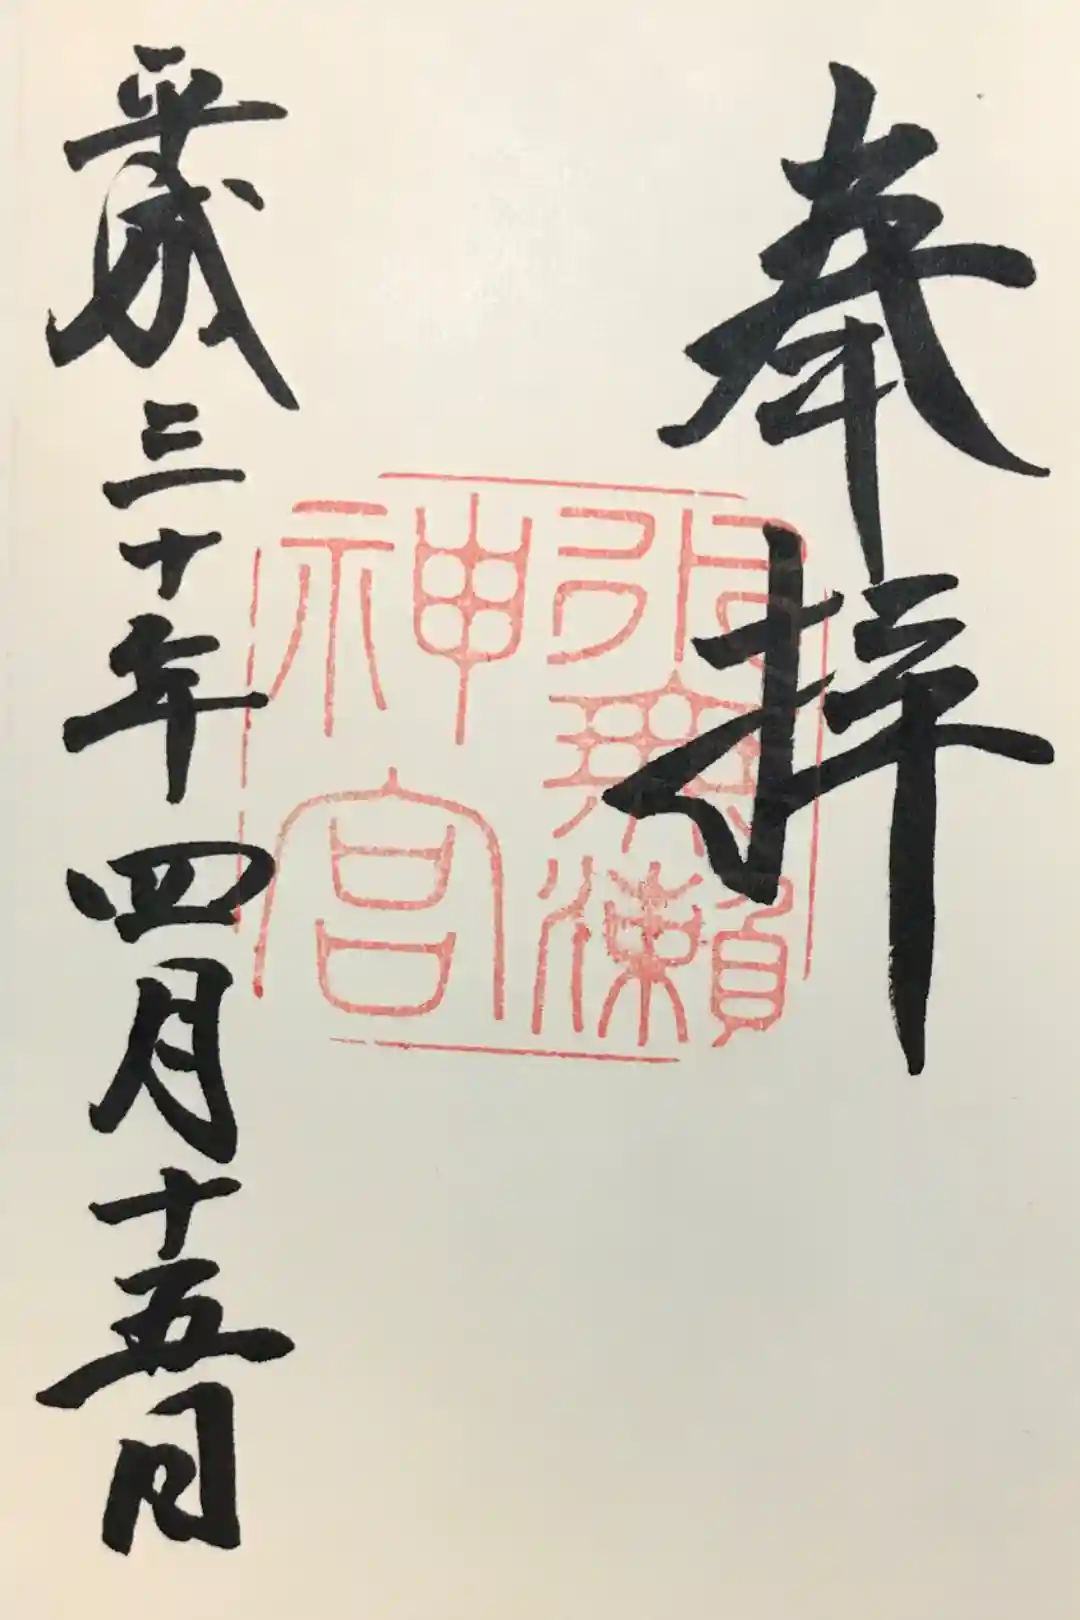 奉拝
水無瀬
神宮
平成三十年四月十五日